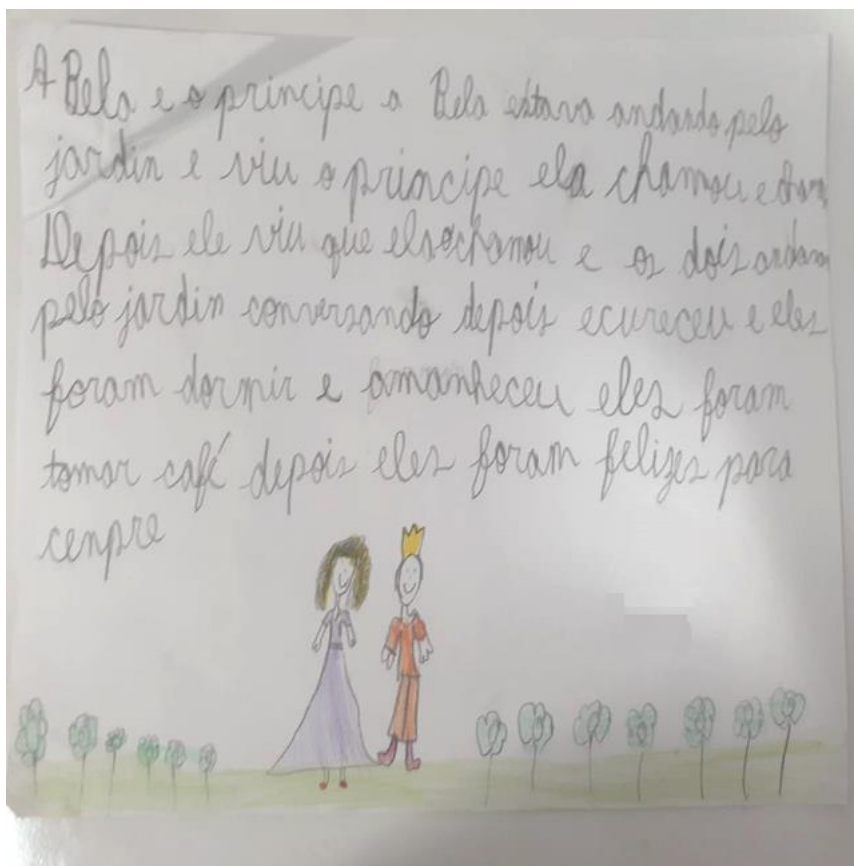 A Bela e o principe a Bela estava andando pelo
jardin e viu o principe ela chamou e
Depois ele viu que elaochamou e os dois andaram
pelo jardin conversando depois ecureceu e eles
foram dormir e amanheceu eles foram
tomar café depois eles foram felizes para
cenpre